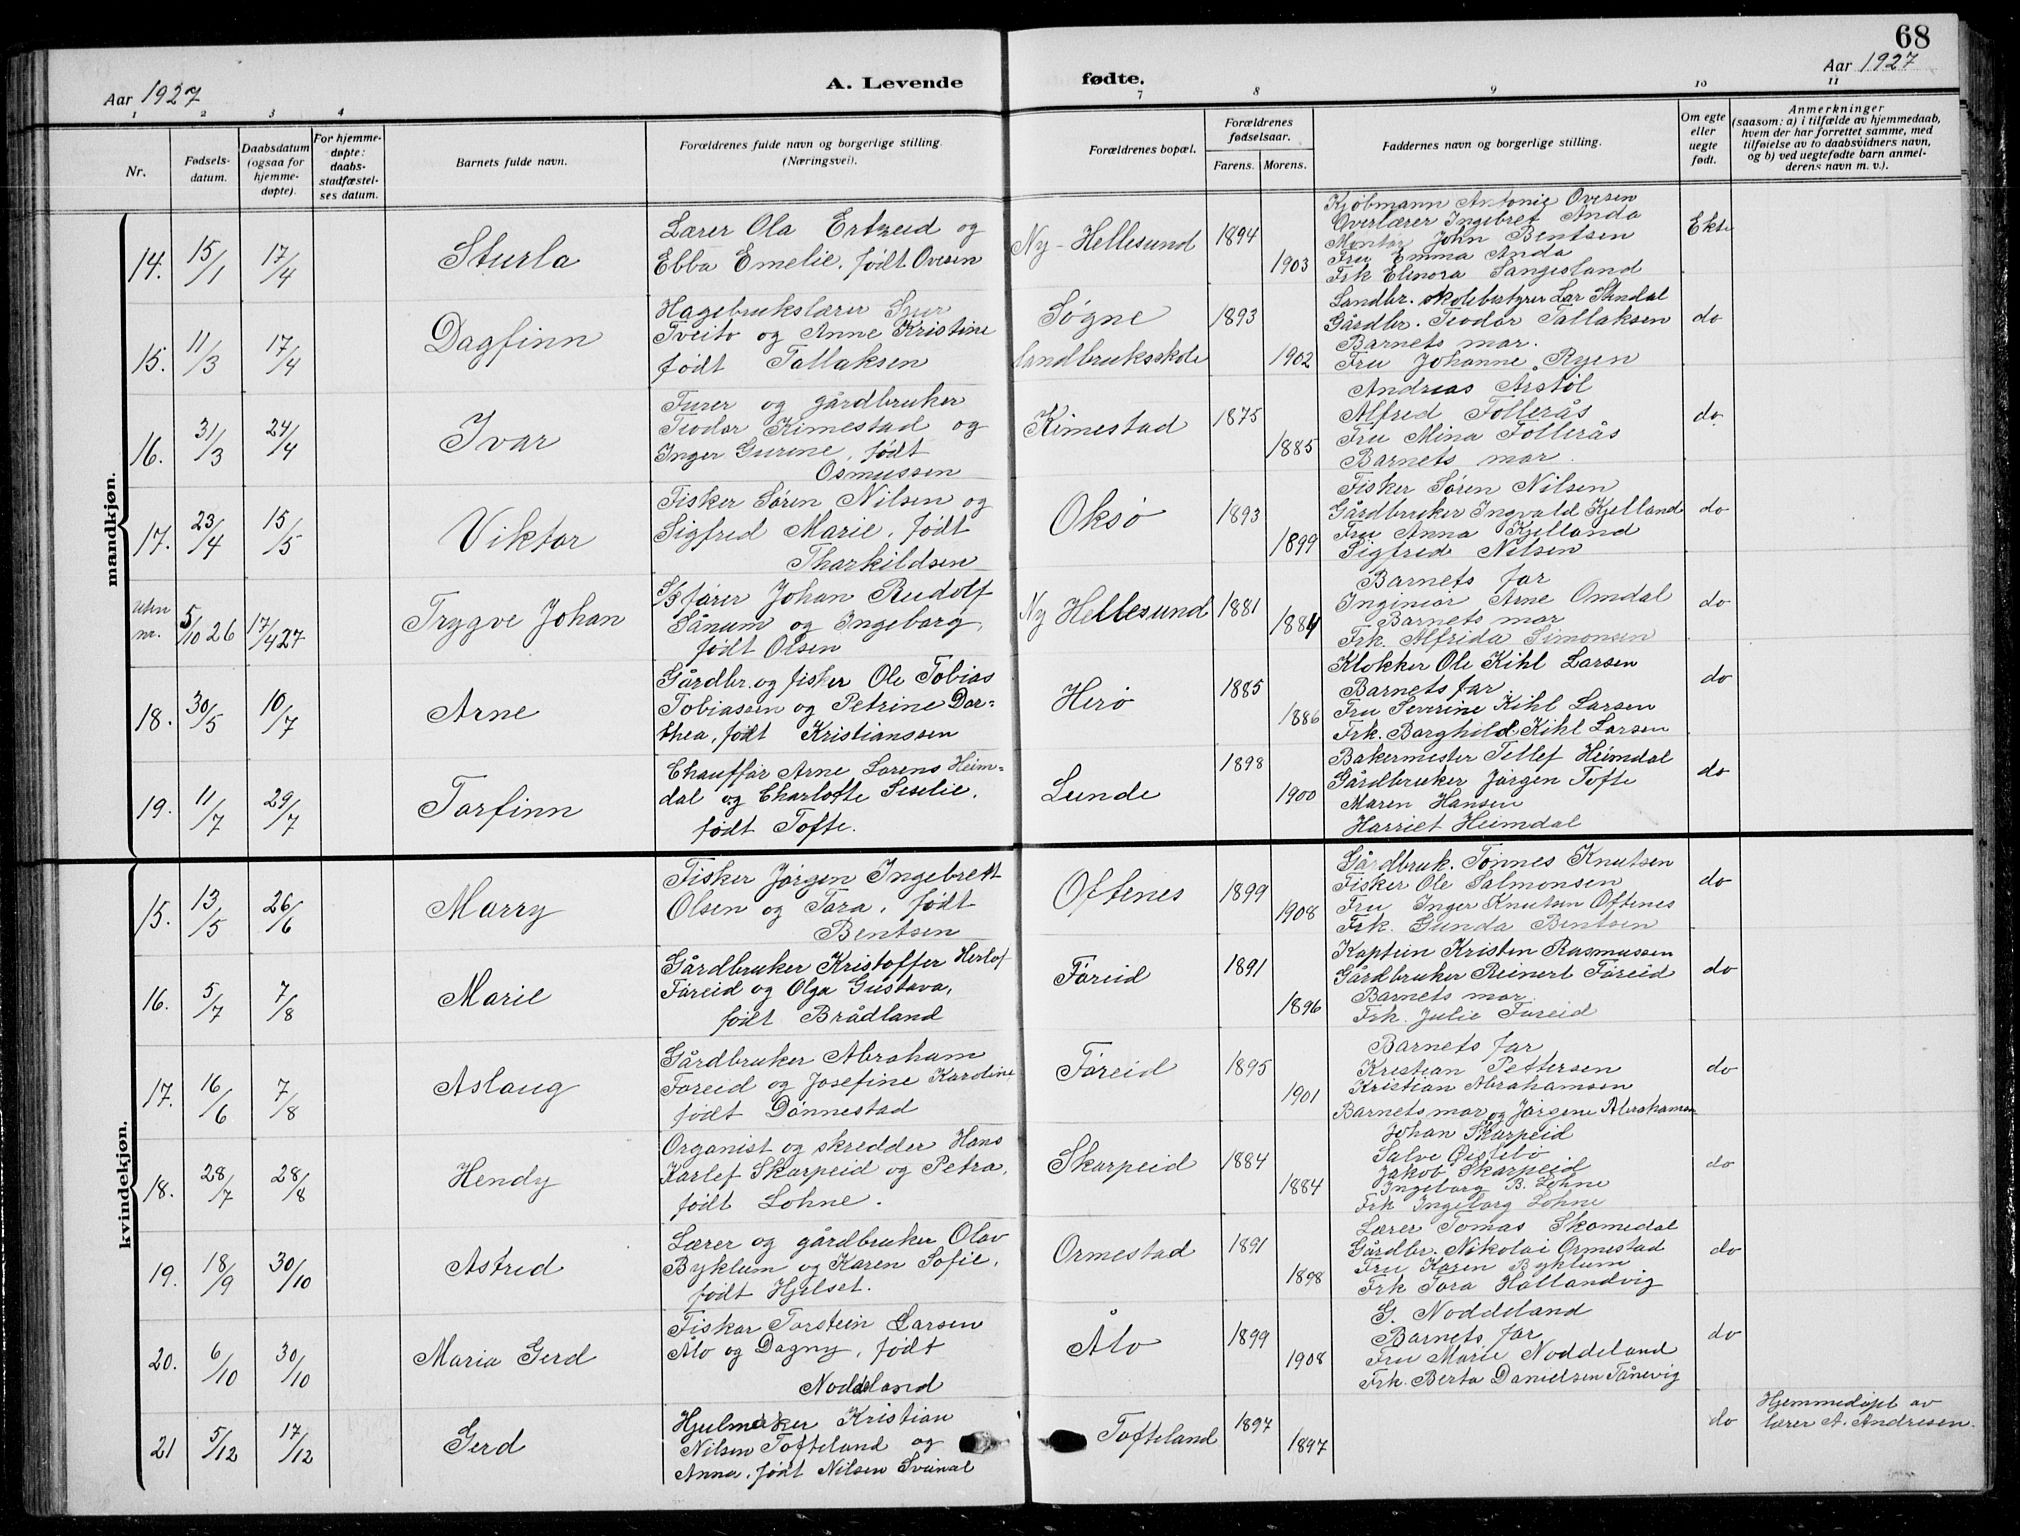 68
Aar 1927
A. Levende
fødte.
Aar 1927
1 2 3 4 7 8 9 10 11
Nr.
Fødsels-
datum.
Daabsdatum
(ogsaa for
hjemme-
døpte).
For hjemme-
døpte:
daabs-
stadfæstel-
ses datum.
Barnets fulde navn.
Forældrenes fulde navn og borgerlige stilling.
(Næringsvei).
Forældrenes bopæl.
Forældrenes
fødselsaar.
Farens. Morens.
Faddernes navn og borgerlige stilling.
Om egte
eller
uegte
født.
Anmerkninger
(saasom: a) i tilfælde av hjemmedaab,
hvem der har forrettet samme, med
tilføielse av to daabsvidners navn,
og b) ved uegtefødte barn anmel-
derens navn m. v.).
mandkjøn.
14. 15/1 17/4 Sturla
Lærer Ola Ertzeid og
Ebba Emelie, født Ovesen
Ny-Hellesund 1894 1903
Kjøbmann Antonie Ovesen
Overlærer Ingebret Anda
Montør John Bentsen
Fru Emma Anda
Frk Elinora Langesland
Ekte
15. 11/3 17/4 Dagfinn
Hagebrukslærer Sjur
Tveito og Anne Kristine
født Tallaksen
Søgne
landbruksskole
1893 1902
Landbr. skolebestyrer Lar Stendal
Gårdbr. Teodor Tallaksen
Barnets mor.
Fru Johanne Ryen
do
16. 31/3 24/4 Ivar
Furer og gårdbruker
Teodor Kimestad og
Inger Gurine, født
Osmussen
Kimestad 1875 1885
Andreas Årstøl
Alfred Follerås
Fru Mina Follerås
Barnets mor.
do
17. 23/4 15/5 Viktor
Fisker Søren Nilsen og
Sigfred Marie, født
Tharkildsen
Oksø 1893 1899
Fisker Søren Nilsen
Gårdbruker Ingvald Kjelland
Fru Anna Kjelland
Sigfred Nilsen
do
uten
nr. 5/10 26 17/4 27 Trygve Johan
S/S fører Johan Rudolf
Sånum og Ingeborg,
født Olsen
Ny Hellesund 1881 1884
Barnets far
Inginiør Arne Omdal
Barnets mor
Frk. Alfrida Simonsen
do
18. 30/5 10/7 Arne
Gårdbr. og fisker Ole Tobias
Tobiassen og Petrine Dor-
thea, født Kristianssen
Herø 1885 1886
Klokker Ole Kihl Larsen
Barnets far,
Fru Severine Kihl Larsen
Frk. Borghild Kihl Larsen
do
19. 11/7 29/7 Torfinn
Chauffør Arne Lorens Heim-
dal og Charlotte Seselie,
født Tofte.
Lunde 1898 1900
Bakermester Tellef Heimdal
Gårdbruker Jørgen Tofte
Maren Hansen
Harriet Heimdal
do
kvindekjøn.
15. 13/5 26/6 Marry
Fisker Jørgen Ingebrett
Olsen og Tora, født
Bentsen
Oftenes 1899 1908
Gårdbruk. Tønnes Knutsen
Fisker Ole Salmonsen
Fru Inger Knutsen Oftenes
Frk. Gunda Bentsen
do
16. 5/7 7/8 Marie
Gårdbruker Kristoffer Herlof
Føreid og Olga Gustava,
født Brådland
Føreid 1891 1896
Kaptein Kristen Rasmussen
Gårdbruker Reinert Føreid
Barnets mor.
Frk. Julie Føreid
do
17. 16/6 7/8 Aslaug
Gårdbruker Abraham
Føreid og Josefine Karoline
født Dønnestad
Føreid 1895 1901
Barnets far
Kristian Pettersen
Kristian Abrahamsen
Barnets mor og Jørgine Abrahamsen
do
18. 28/7 28/8 Hendy
Organist og skredder Hans
Tarlef Skarpeid og Petra,
født Lohne.
Skarpeid 1884 1884
Johan Skarpeid
Salve Øislebø
Jakob Skarpeid
Ingeborg B. Lohne
Frk Ingeborg Lohne
do
19. 18/9 30/10 Astrid
Lærer og gårdbruker Olav
Byklum og Karen Sofie,
født Hjelset.
Ormestad 1891 1898
Lærer Tomas Skomedal
Gårdbr. Nikolai Ormestad
Fru Karen Byklum
Frk Tora Hallandvig
do
20. 6/10 30/10 Maria Gerd
Fisker Torstein Larsen
Ålo og Dagny, født
Noddeland
Ålo 1899 1908
G. Noddeland
Barnets far
Fru Marie Noddeland
Frk. Berta Danielsen Tånevig
do
21 5/12 17/12 Gerd
Hjulmaker Kristian
Nilsen Tofteland og
Anna, født Nilsen Sveinal
Tofteland 1897 1897
do
Hjemmedøpt av
lærer A. Andresen.